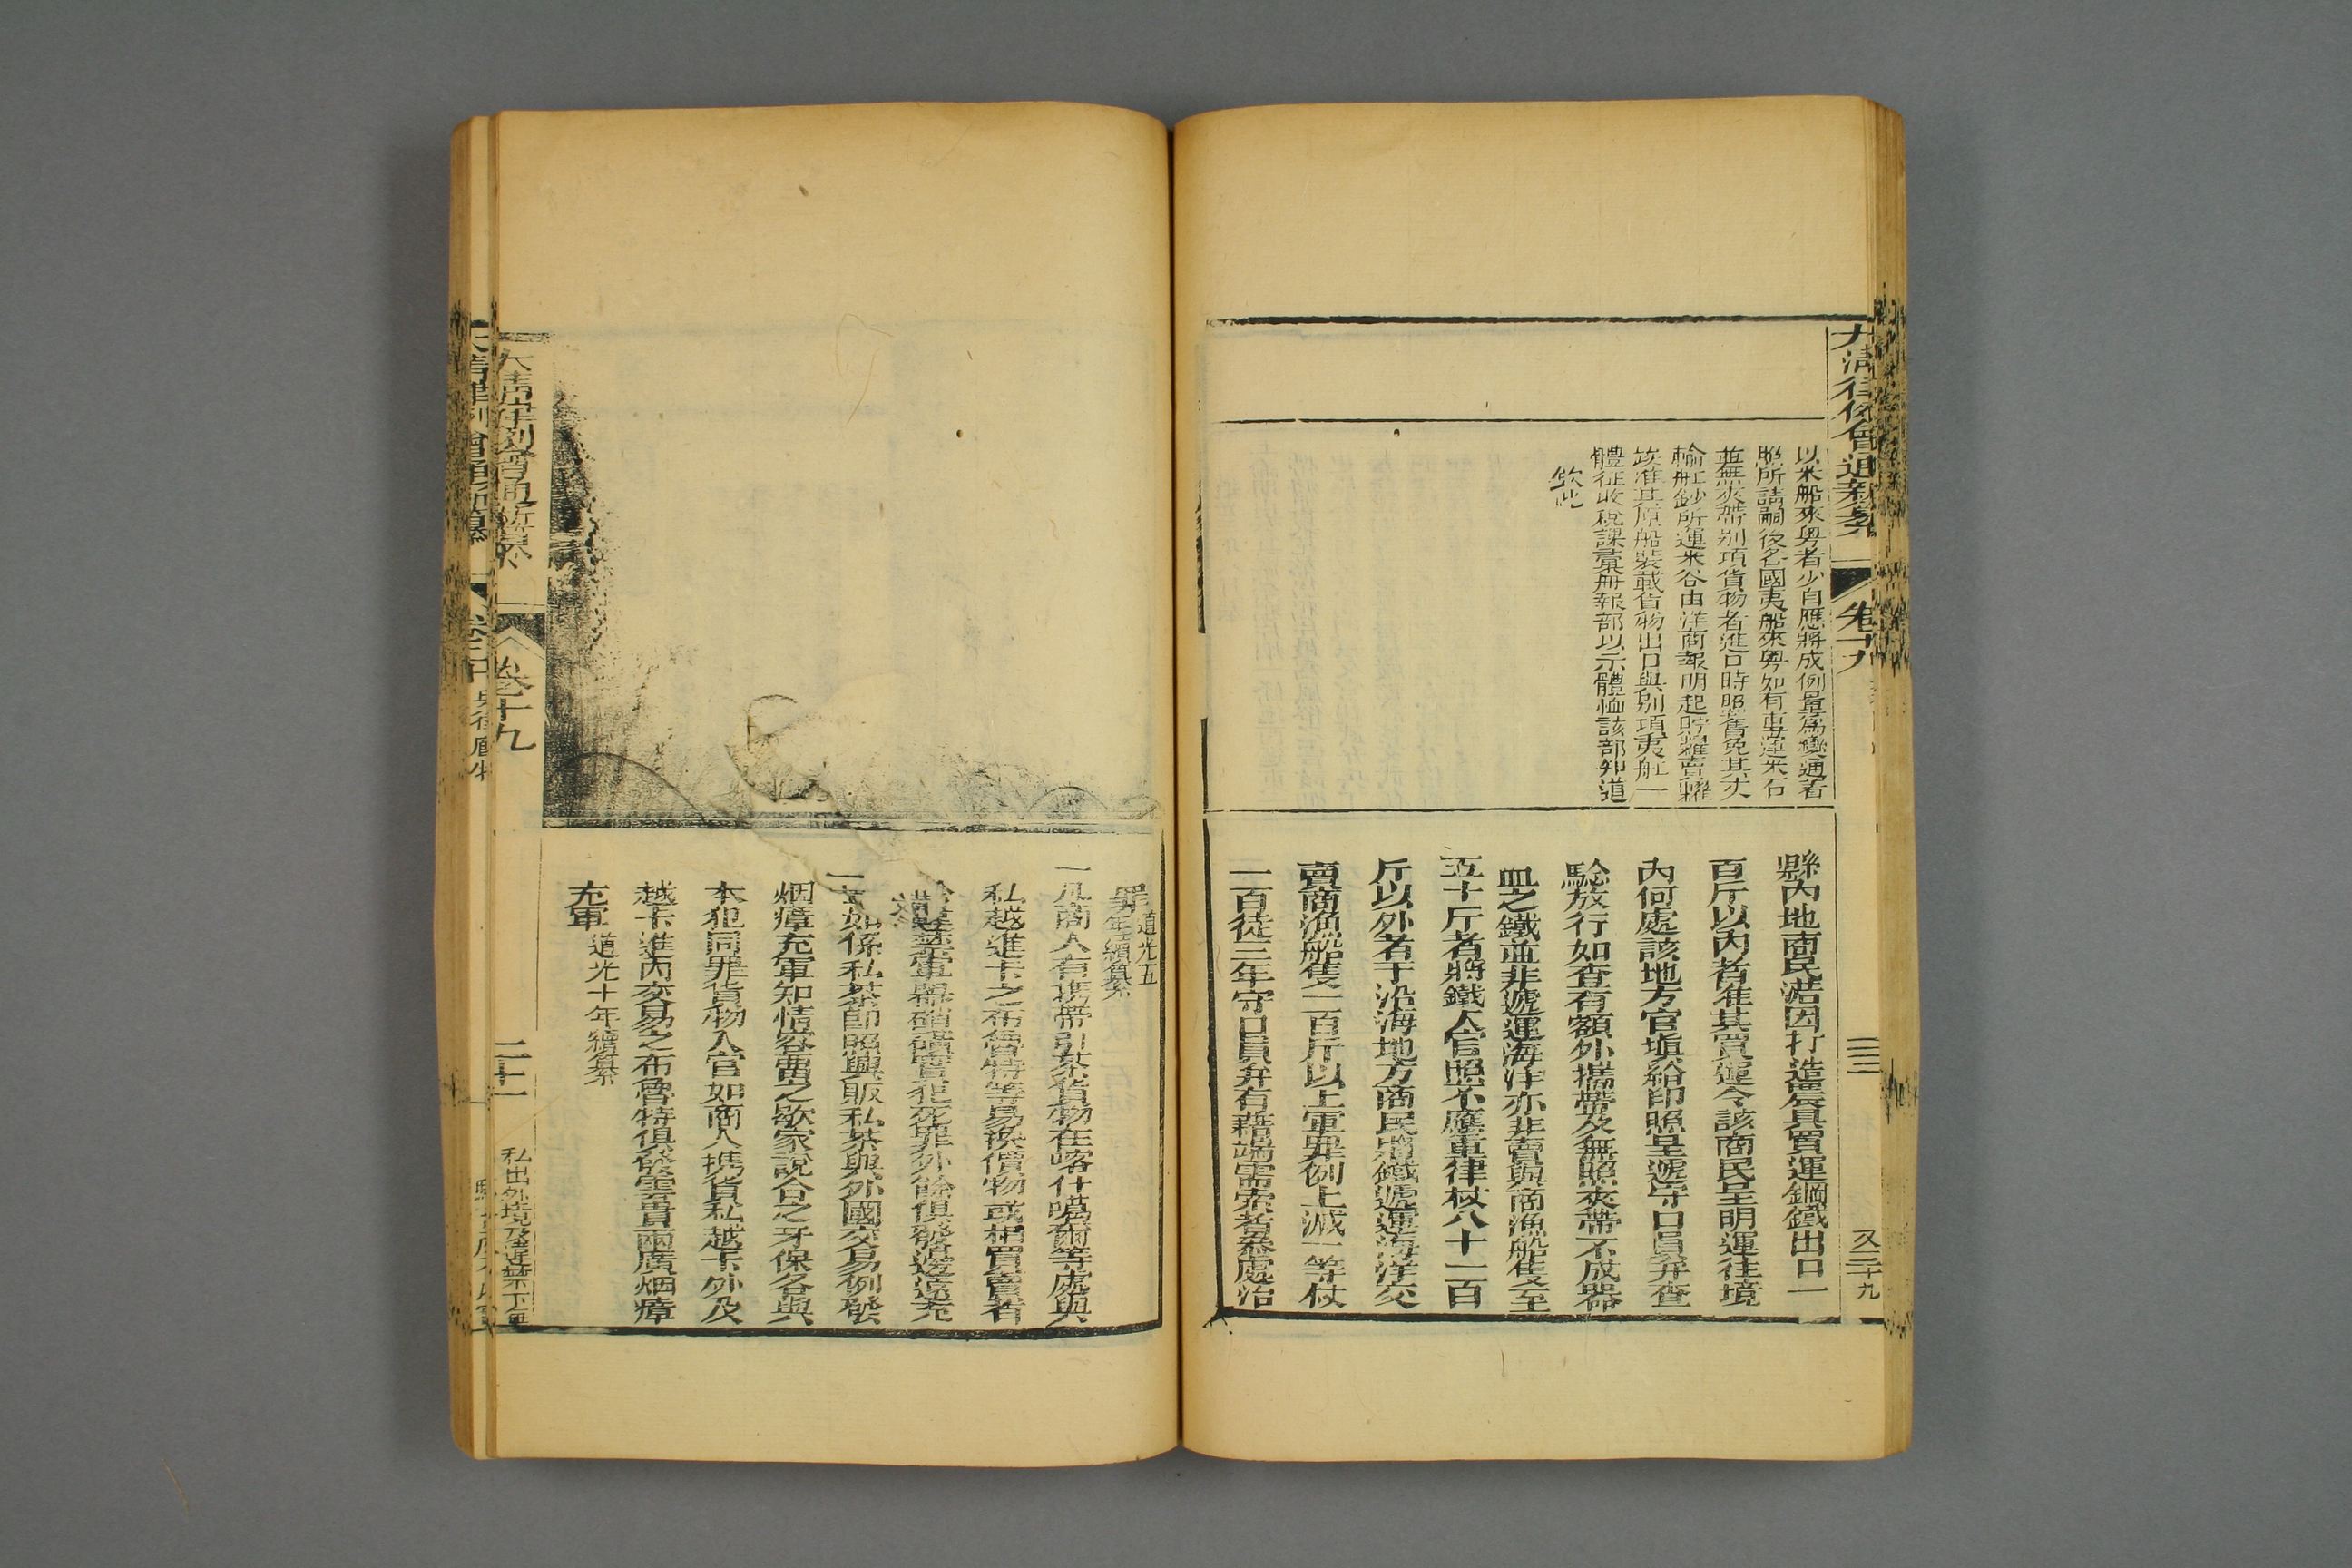 大清律例會通新纂
卷十九
三三
又二十九
以米船來粵者少自應將成例量為變通著
照所請嗣後各國夷船來粵如有專運米石
並無夾帶別項貨物者進口時照舊免其丈
輸船鈔所運米谷由洋商報明起貯糶賣糶
竣准其原船裝載貨物出口與別項夷船一
體征收稅課彙冊報部以示體恤該部知道
欽此
縣內地商民
因打造農具買運鋼鐵出口一
百斤以內者准其買運令該商民呈明運往境
內何處該地方官塡給印照呈遞守口員弁查
驗放行如查有額外攜帶及無照夾帶不成器
皿之鐵並非遞運海洋亦非賣與商漁船隻至
五十斤者將鐵入官照不應重律杖八十一百
斤以外者于沿海地方商民將鐵遞運海洋交
賣商漁船隻一百斤以上軍罪例上減一等杖
一百徒三年守口員弁有藉端需索者
處治
罪 道光五
年續纂
一凡商人有携帶引茶貨物在喀什噶爾等處與
私越進卡之布魯特等易換價物或相買賣者
違禁軍器硝磺實犯死罪外餘俱發邊遠充
如係私茶卽照興販私茶與外國交易例發
烟瘴充軍知情容畱之歇家說合之牙保各與
本犯同罪貨物入官如商人携貨私越卡外及
越卡進內交易之布魯特俱發雲貴兩廣烟瘴
充軍 道光十年續纂
大清律例會通新纂
卷十九
二十一
私出外境及違禁下海
大清律例會通新纂
卷二十